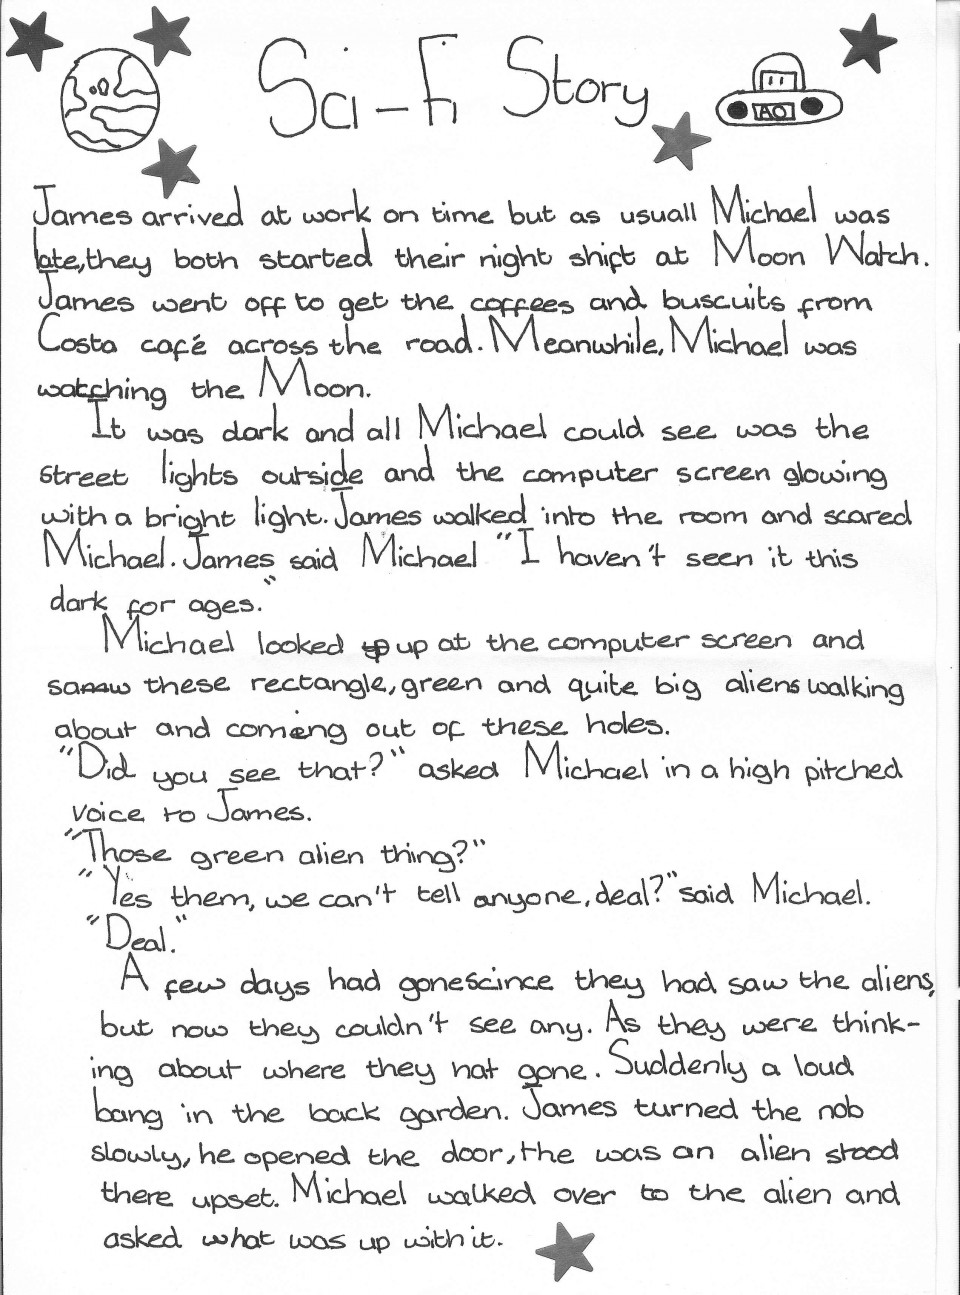 Sci-Fi Story
AO
James arrived at work on time but as usuall Michael was
late, they both started their night shift at Moon Watch.
James went off to get the coffees and buscuits from
Costa café across the road. Meanwhile, Michael was
watching the Moon.
It was dark and all Michael could see was the
street lights outside and the computer screen glowing
with a bright light. James walked into the room and scared
Michael. James said Michael "I haven't seen it this
dark for ages."
Michael looked up at the computer screen and
saw these rectangle, green and quite big aliens walking
about and coming out of these holes.
"Did you see that?" asked Michael in a high pitched
voice to James.
"Those green alien thing?"
"Yes them, we can't tell anyone, deal?" said Michael.
"Deal."
A few days had gone scince they had saw the aliens,
but now they couldn't see any. As they were think-
ing about where they hat gone. Suddenly a loud
bang in the back garden. James turned the nob
slowly, he opened the door, the was an alien stood
there upset. Michael walked over to the alien and
asked what was up with it.